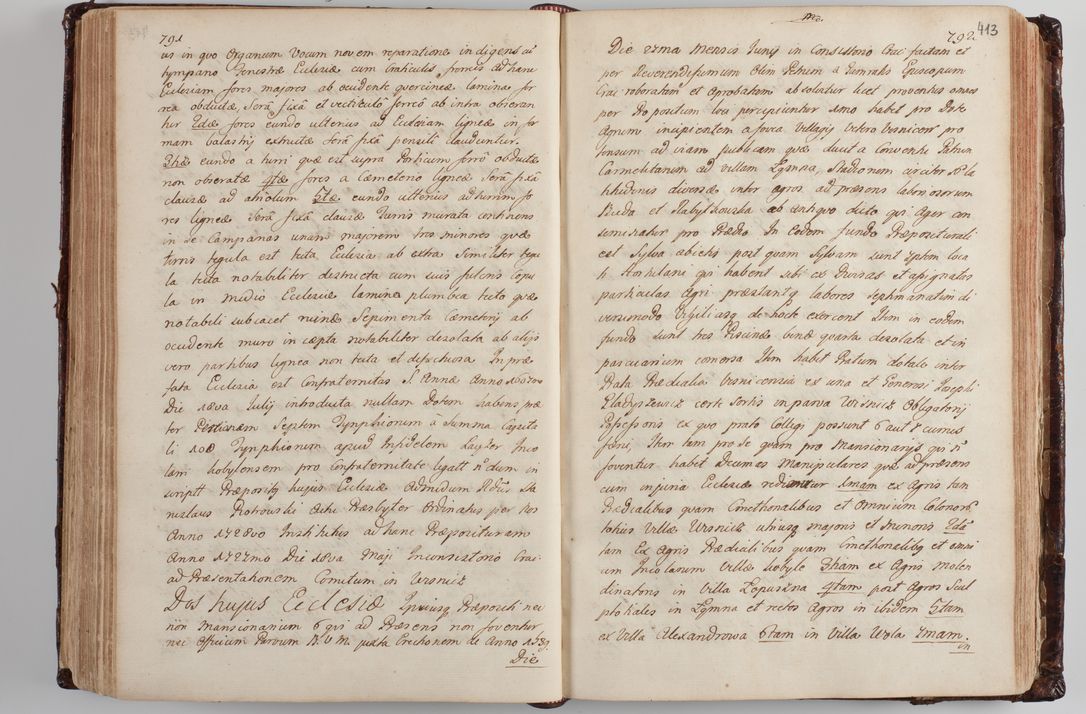 791
us in quo Organum Vocum novem reparatione indigens cū
tympano Fenestræ Ecclesiæ cum Craticulis ferreis ad hanc
Ecclesiam fores majores ab occidente quercineæ lamina fer
rea obductæ Serâ fixâ et vecticulo ferreô ab intra obseran
tur 2dæ fores eundo ulterius ad Ecclesiam ligneæ in for
mam balastrij extructæ Serâ fixâ pensuli clauduntur.
3tiæ eundo a turri quæ est supra Porticum ferrô obductæ
non obseratæ 4tæ fores a Cæmeterio ligneæ Serâ fixâ
clausæ ad atriolum 5tæ eundo ulterius ad turrim fo
res ligneæ Serâ fixâ clausæ Turris murata continens
in se Campanas unam majorem tres minores quæ
turris tegula est tecta Ecclesia ab extra Similiter tegu
la tecta notabiliter destructa cum suis fulcris Copu
la in medio Ecclesiæ lamina plumbea tecta quæ
notabili subiacet ruinæ Sepimenta Cæmeterij ab
occidente muro in cæpta notabiliter desolata ab alijs
vero partibus lignea non tecta et defectuosa In præ
fata Ecclesia est Confraternitas S. Annæ Anno 1667mo
Die 18va Julij introducta nullam Dotem habens præ
ter Septem Tynphionum à Summa Capita
li 108 Tynphionum apud Infidelem Layzer Inco
lam Kobylensem pro Confraternitate legatt dum in
scriptt Præpositus hujus Ecclesiæ Admodum Rdus Sta
nislaus Rotrowski Actu Præsbyter Ordinatus per nos
Anno 1728vo Institutus ad hanc Præposituram
Anno 1727mo Die 18va Maij Inconsistorio Crac:
ad Præsentationem Comitum in Wisnicz
Dos hujus Ecclesiæ Ipsiusq Præposit nec
non Mansionarium 6 qui ad Præsens non foventur
nec Officium Parvum B.V.M. juxta Erectionem de Anno
Die
792. 413
Die 22ma Mensis Junij in Consistorio Crac: factam et
per Reverendissimum Olim Petrum a Episcopum
Crac: roboratam et Aprobatam absolvitur licet proventus omnes
per Do positum loci percipiuntur 1mo habet pro Dote
Agrum incipientem a fovea Villagij Vetero Visnicen pro
tensum ad viam publicam quæ ducit a Conventu Patrum
Carmelitanum ad Villam Łomna, Stadionum circiter
titudinis diversæ inter agros ad præsens laboriosorum
Buda et Nabytkowska ab antiquo dicto qui Ager con
seminatur pro Prædio In eodem fundo Præpositurali
est Sylva abictis post quam Sylvam sunt Septem loca
ti Hortulani qui habent sibi ex Curias et assignatos
particulas Agri præstantq labores Septimanatim di
versimodo Vigiliasq de nocte exercent Item in eodem
fundo sunt tres Piscinæ binæ quarta desolata et in
pascuarium conversa Item habet Pratum dotale inter
Prata Prædialia Visnicensia ex una et Generosi Josephi
Gladyszewicz certæ Sortis in parva Wisnicz Obligatorij
Possessoris ex quo prato Colligi possunt 6 aut 8 currus
fæni, Item tam pro se quam pro Mansionarijs qui
foventur habet Decimas Manipulares quæ ad præsens
cum injuria Ecclesiæ redduntur 1mam ex Agris tam
Prædialibus quam Cmethonalibus et Omnium Colonorū
totius Villæ Wisnicz utriusq majoris et minoris 2da
tam Ex Agris Prædialibus quam Cmethonalibq et omni
um Incolarum Villæ Kobyle 3tiam ex Agris Molen
dinatoris in Villa Lopuszna 4tam post Agros Scul
ptetiales in Łomna et retro Agros in ibidem 5tam
ex Villa Alexandrowa 6tam in Villa Wola 7mam.
in